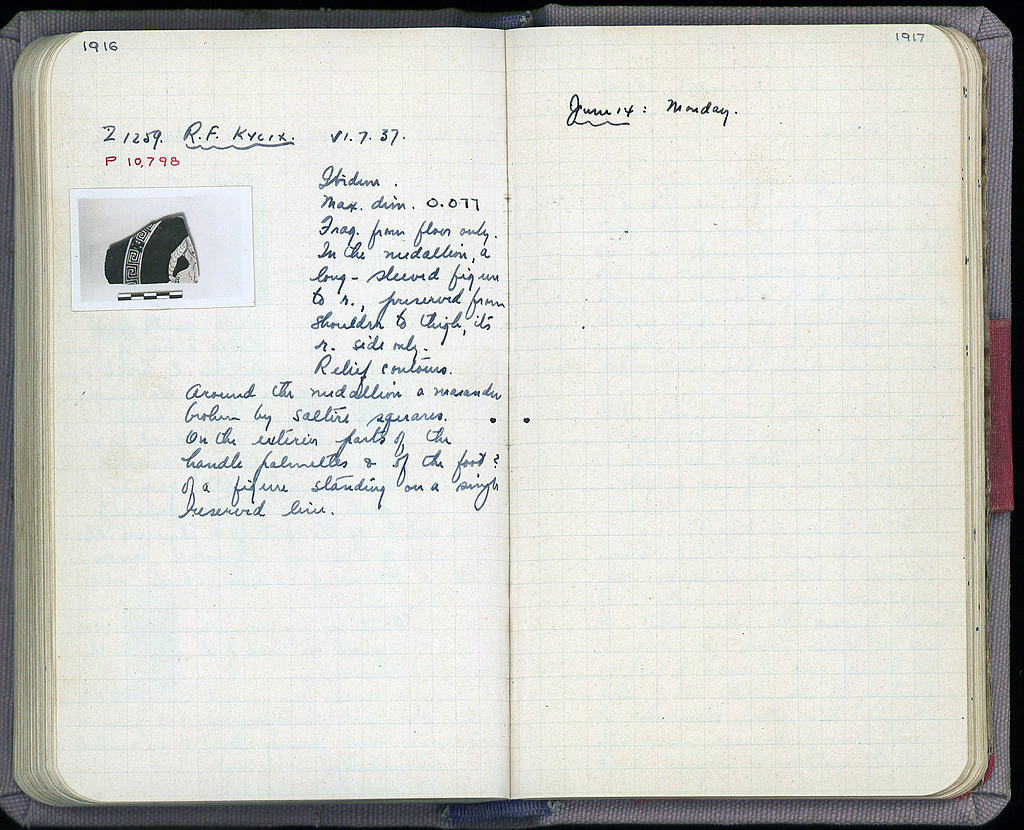 1916
Σ 1259. R.F. Kylix. VI.7.37.
P 10,798
Ibidem.
Max. dim. 0.077
Frag. from floor only.
In the medallion, a
long-sleeved figure
to r., preserved from
shoulder to thigh, its
r. side only.
Relief contours.
Around the medallion a maeander
broken by saltire squares.
On the exterior parts of the
handle palmettes & of the foot?
of a figure standing on a single
reserved line.
1917
June 14: Monday.